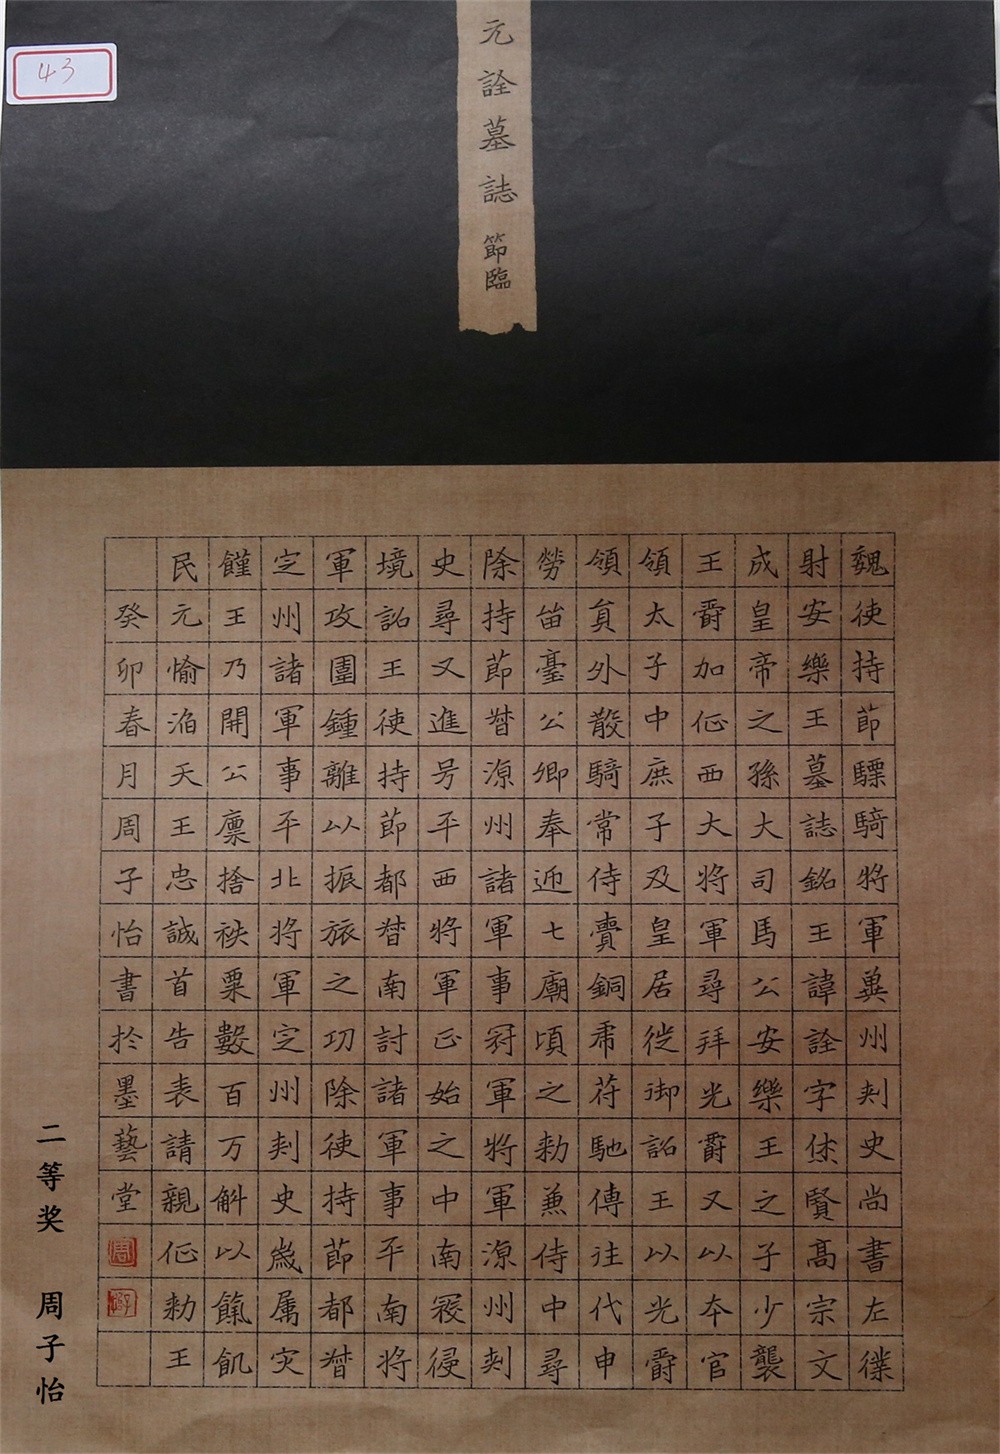 43
元詮墓誌節臨
魏使持節驃騎將軍冀州刺史尚書左僕
射安樂王墓誌銘王諱詮字休賢高宗文
成皇帝之孫大司馬公安樂王之子少襲
王爵加征西大將軍尋拜光爵又以本官
領太子中庶子及皇居徙御詔王以光爵
領員外散騎常侍賷銅虎苻馳傳往代申
勞留臺公卿奉迎七廟頃之勑兼侍中尋
除持節督涼州諸軍事冠軍將軍涼州刺
史尋又進号平西將軍正始之中南寇侵
境詔王使持節都督南討諸軍事平南將
軍攻圍鍾離以振旅之功除使持節都督
定州諸軍事平北將軍定州刺史歲属灾
饉王乃開公廩捨秧粟數百万斛以餼飢
民元愉滔天王忠誠首告表請親征勑王
癸卯春月周子怡書於墨藝堂
二等奖 周子怡